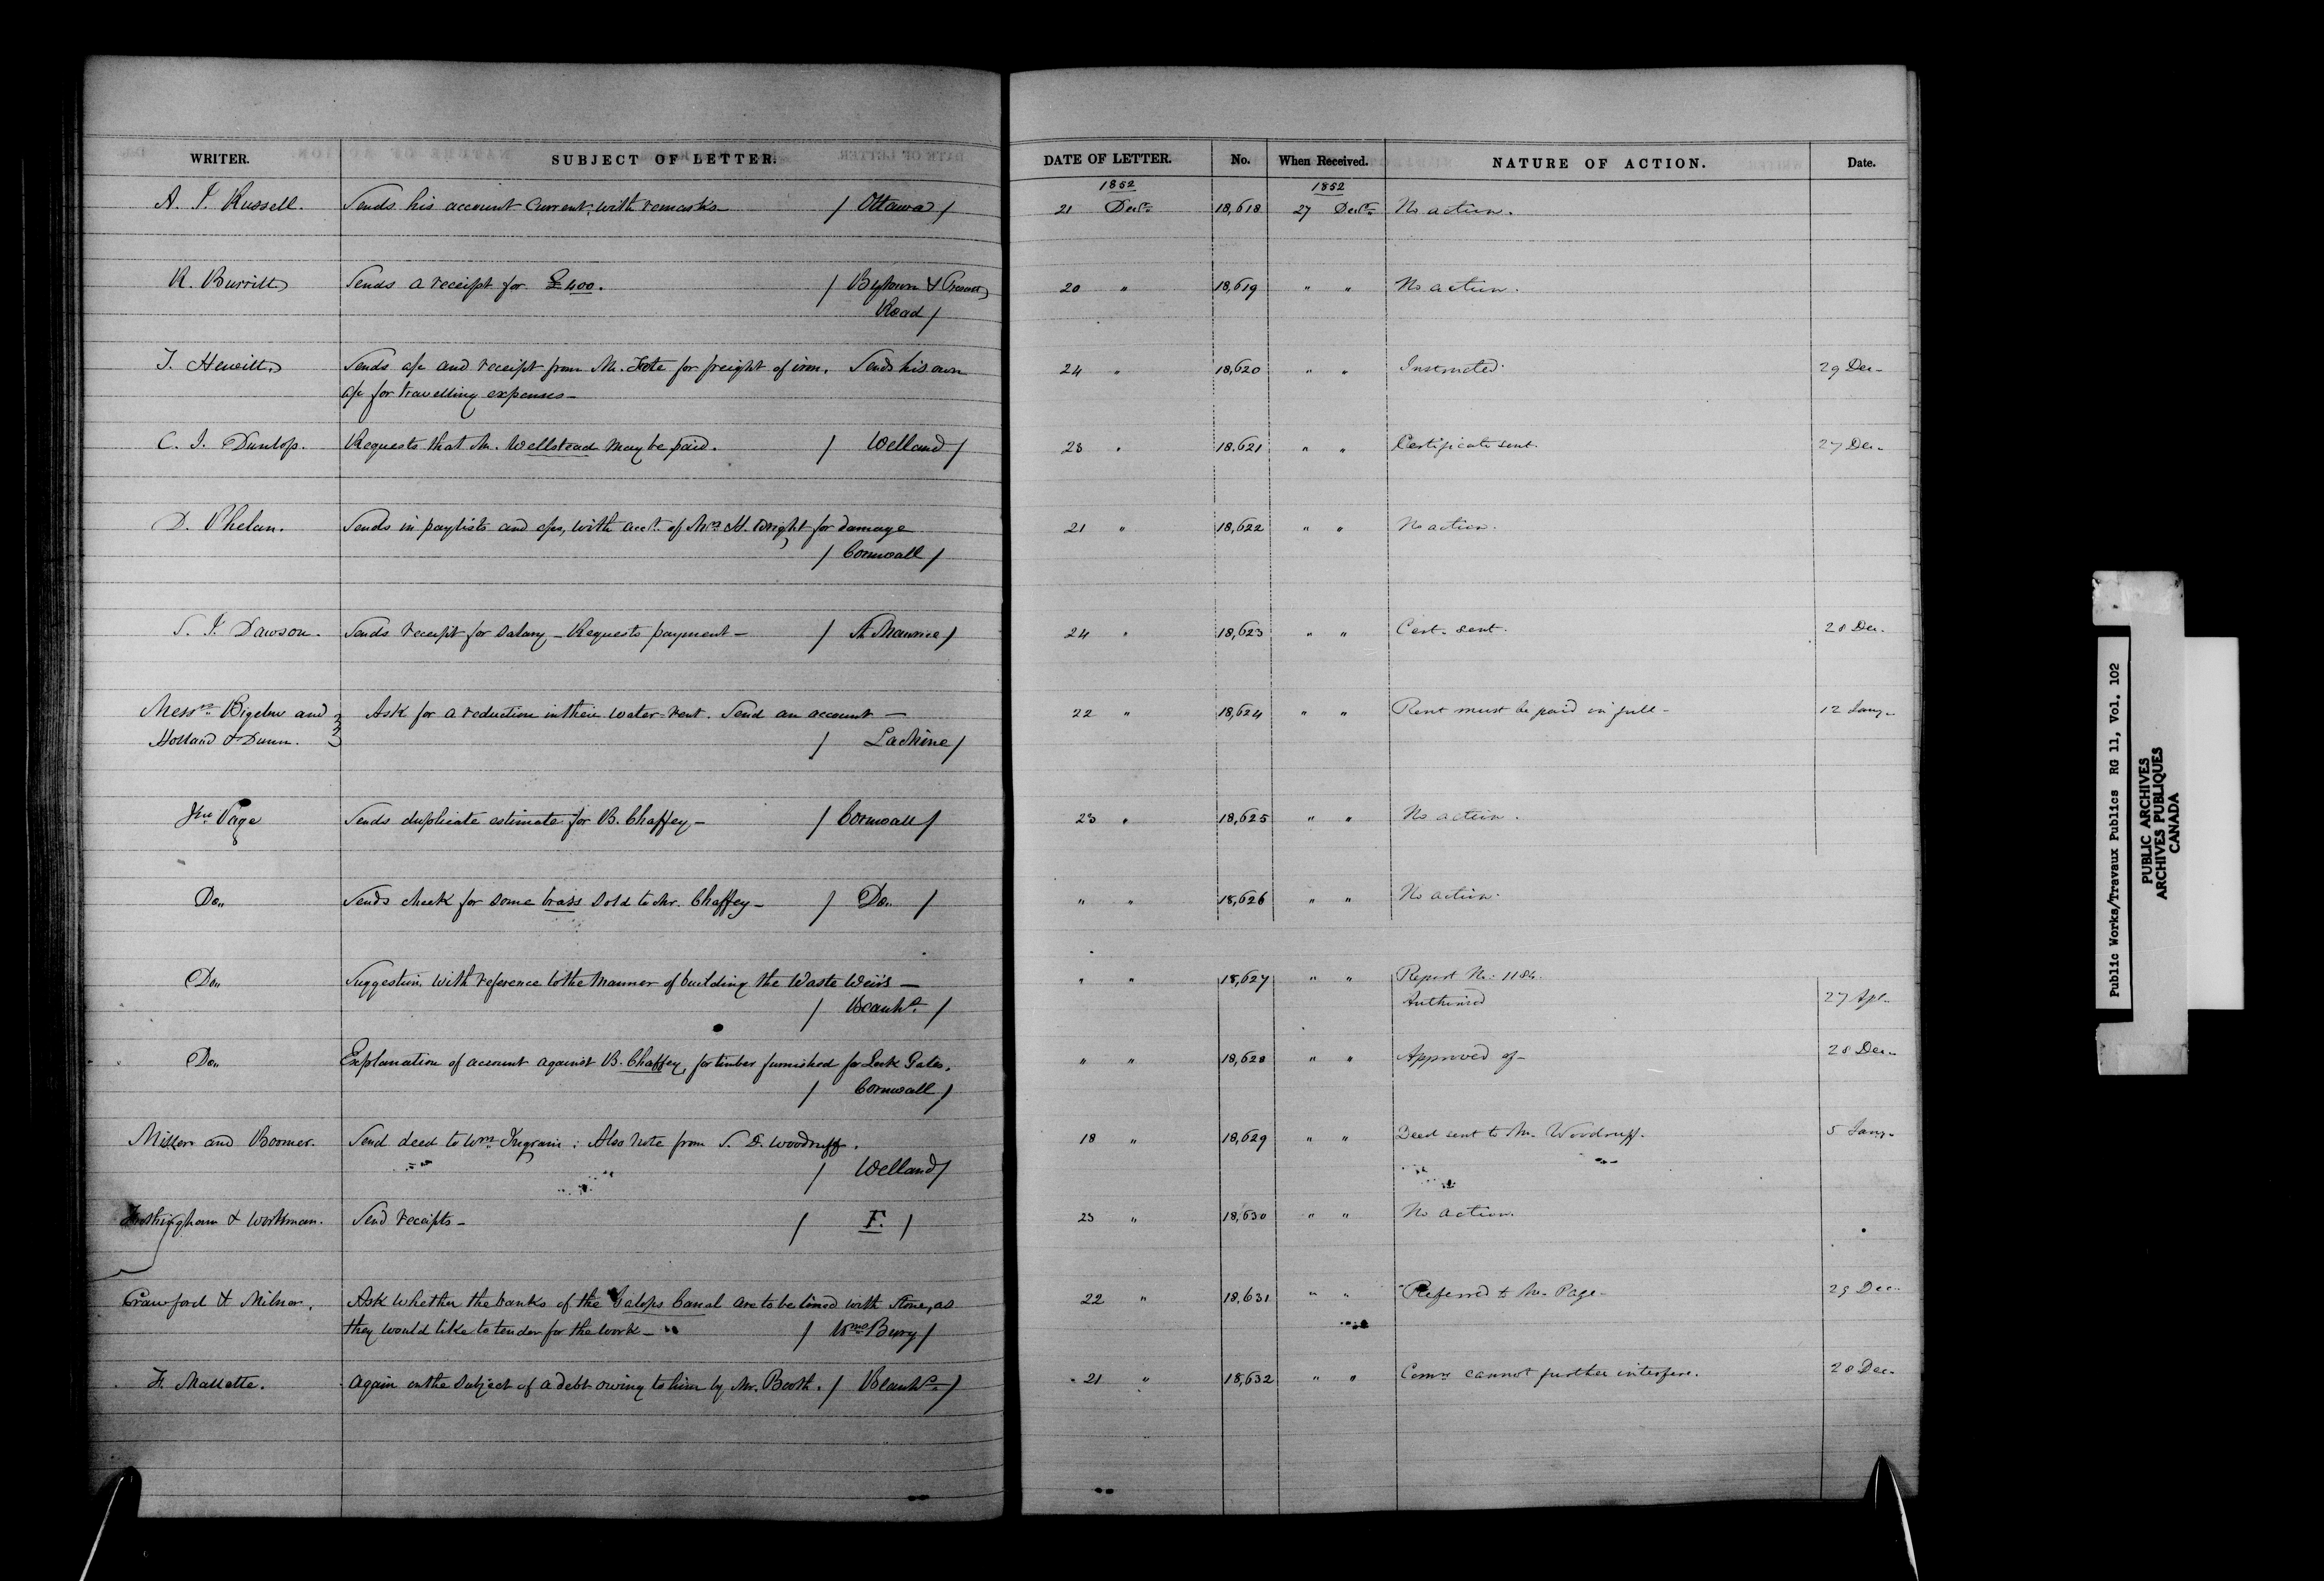 WRITER. SUBJECT OF LETTER. DATE OF LETTER. No. When Received. NATURE OF ACTION. Date.
1852 1852
A. J. Russell. Sends his account current, with remarks — / Ottawa / 21 Decr. 18,618 27 Decr. No action.
R. Burritt Sends a receipt for £400. / Bytown & Prescott 20 " 18,619 " " No action.
Road /
J. Hewitt Sends a/c and receipt from Mr. Foote for freight of iron. Sends his own 24 " 18,620 " " Instructed. 29 Dec.
a/c for travelling expenses —
C. I. Dunlop. Requests that Mr. Wellstead may be paid. / Welland / 23 " 18.621 " " Certificate sent. 27 Dec.
D. Phelan. Sends in paylists and a/cs, with acct. of Mrs. H. Wright for damage 21 " 18,622 " " No action.
/ Cornwall /
S. J. Dawson. Sends receipt for salary — Requests payment — / St Maurice / 24 " 18,623 " " Cert. sent. 28 Dec.
Messrs. Bigelow and Ask for a reduction in their water-rent. Send an account — 22 " 18,624 " " Rent must be paid in full — 12 Jany.
Holland & Dunn. / Lachine /
Jno. Page Sends duplicate estimate for B. Chaffey — / Cornwall / 23 " 18,625 " " No action.
Do. Sends check for some brass sold to Mr. Chaffey — / Do. / " " 18,626 " " No action.
Do. Suggestion with reference to the manner of building the Waste Weirs — " " 18,627 " " Report No. 1184.
/ Beauhs. / Authorized 27 Apl.
Do. Explanation of account against B. Chaffey, for timber furnished for Lock Gates. " " 18,628 " " Approved of — 28 Dec.
/ Cornwall /
Miller and Boomer. Send deed to Wm. Ingram: Also note from S. D. Woodruff. 18 " 18,629 " " Deed sent to Mr. Woodruff. 5 Jany.
/ Welland /
Frothingham & Workman. Send receipts — / F. / 23 " 18,630 " " No action.
Crawford & Milnor. Ask whether the banks of the Galops Canal are to be lined with stone, as 22 " 18,631 " " Referred to Mr. Page. 29 Dec.
they would like to tender for the work — / Wms Burg /
F. Mallette. Again on the subject of a debt owing to him by Mr. Booth. / Beauhs. / 21 " 18,632 " " Comrs cannot further interfere. 28 Dec.
Public Works/Travaux Publics RG 11, Vol. 102
PUBLIC ARCHIVES
ARCHIVES PUBLIQUES
CANADA